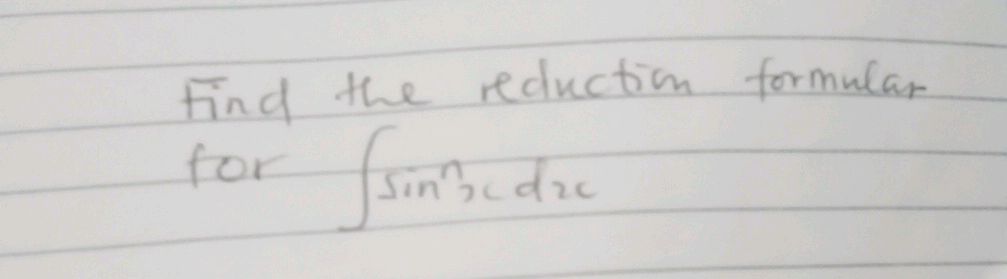 Find the reduction formular
for ∫sinⁿx dx